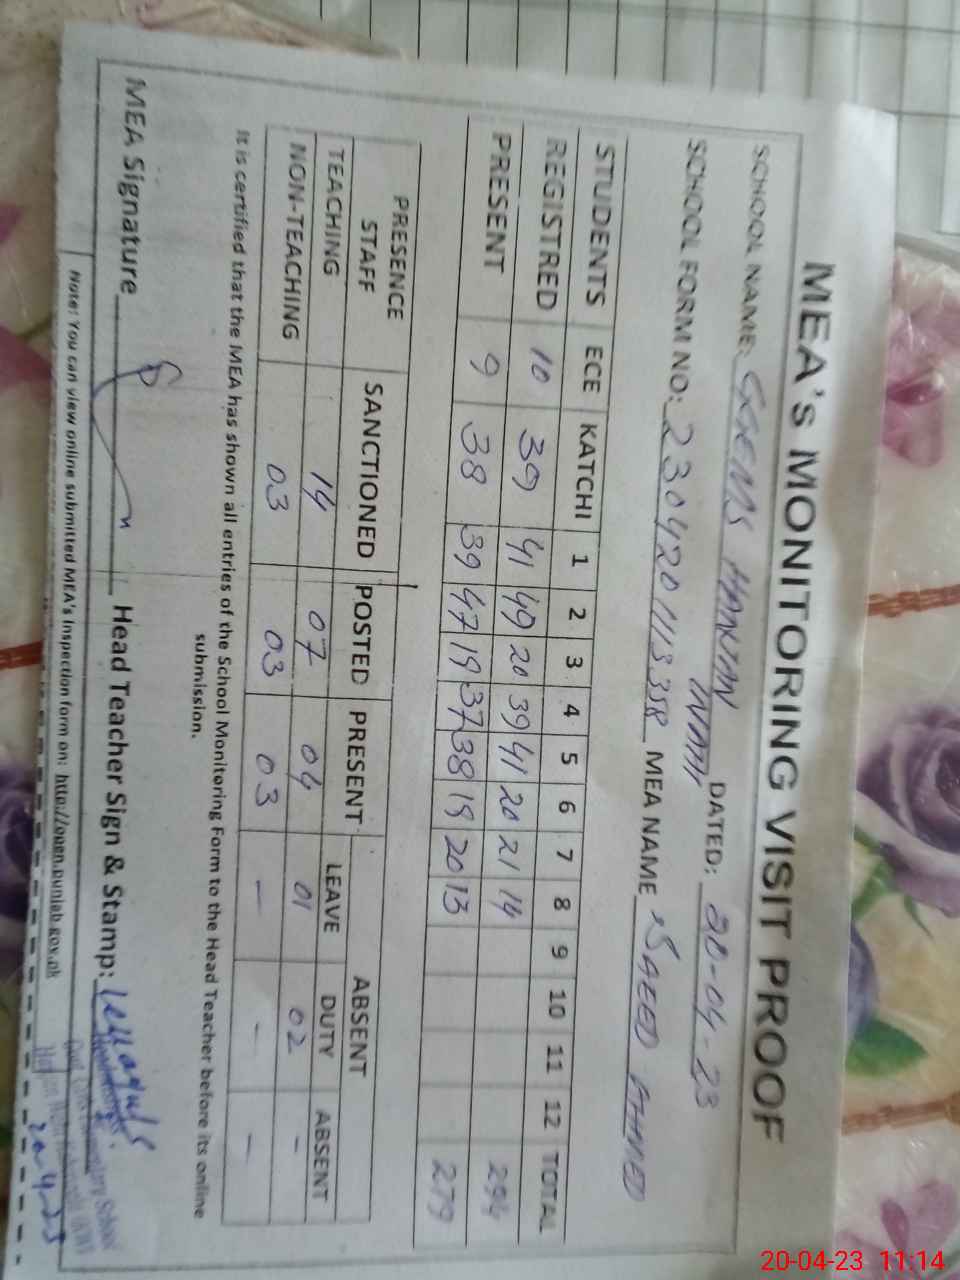 MEA's MONITORING VISIT PROOF
SCHOOL NAME: GGEMS DATED: 20-04-23
SCHOOL FORM NO: MEA NAME SAEED AHMED
STUDENTS ECE KATCHI 1 2 3 4 5 6 7 8 9 10 11 12 TOTAL
REGISTRED 10 39 41 49 20 39 41 20 21 14 294
PRESENT 9 38 39 47 19 37 38 19 20 13 279
PRESENCE STAFF SANCTIONED POSTED PRESENT ABSENT
LEAVE DUTY ABSENT
TEACHING 14 07 04 01 02 -
NON-TEACHING 03 03 03 - - -
It is certified that the MEA has shown all entries of the School Monitoring Form to the Head Teacher before its online
submission.
MEA Signature Head Teacher Sign & Stamp:
20-4-23
Note: You can view online submitted MEA's Inspection form on: http://open.punjab.gov.pk
20-04-23 11:14